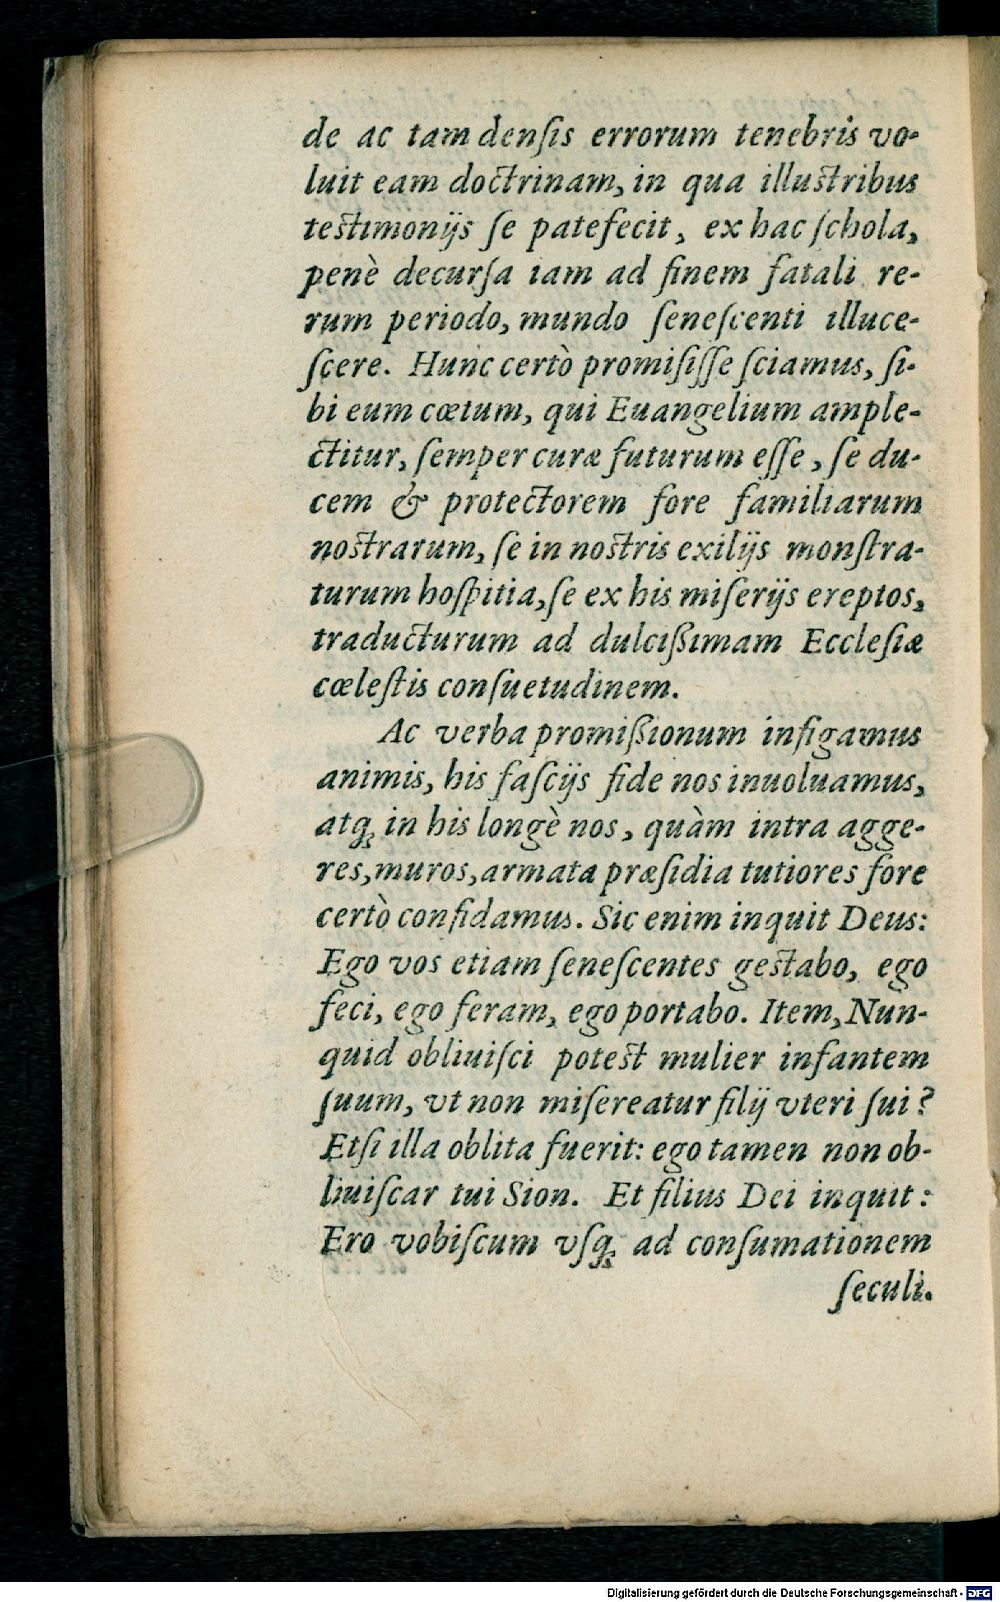 de ac tam denſis errorum tenebris vo-
luit eam doctrinam, in qua illustribus
testimonijs ſe patefecit, ex hac ſchola,
penè decurſa iam ad finem fatali re-
rum periodo, mundo ſeneſcenti illuce-
ſcere. Hunc certò promiſiſſe ſciamus, ſi-
bi eum cœtum, qui Euangelium ample-
ctitur, ſemper curæ futurum eſſe, ſe du-
cem & protectorem fore familiarum
nostrarum, ſe in nostris exilijs monſtra-
turum hoſpitia, ſe ex his miſerijs ereptos,
traducturum ad dulcißimam Eccleſiæ
cœleſtis conſuetudinem.
Ac verba promißionum infigamus
animis, his faſcijs fide nos inuoluamus,
atq; in his longè nos, quàm intra agge-
res, muros, armata præſidia tutiores fore
certò confidamus. Sic enim inquit Deus:
Ego vos etiam ſeneſcentes gestabo, ego
feci, ego feram, ego portabo. Item, Nun-
quid obliuiſci potest mulier infantem
ſuum, vt non miſereatur filij vteri ſui?
Etſi illa oblita fuerit: ego tamen non ob-
liuiſcar tui Sion. Et filius Dei inquit:
Ero vobiſcum vſq; ad conſumationem
ſeculi.
Digitalisierung gefördert durch die Deutsche Forschungsgemeinschaft - DFG